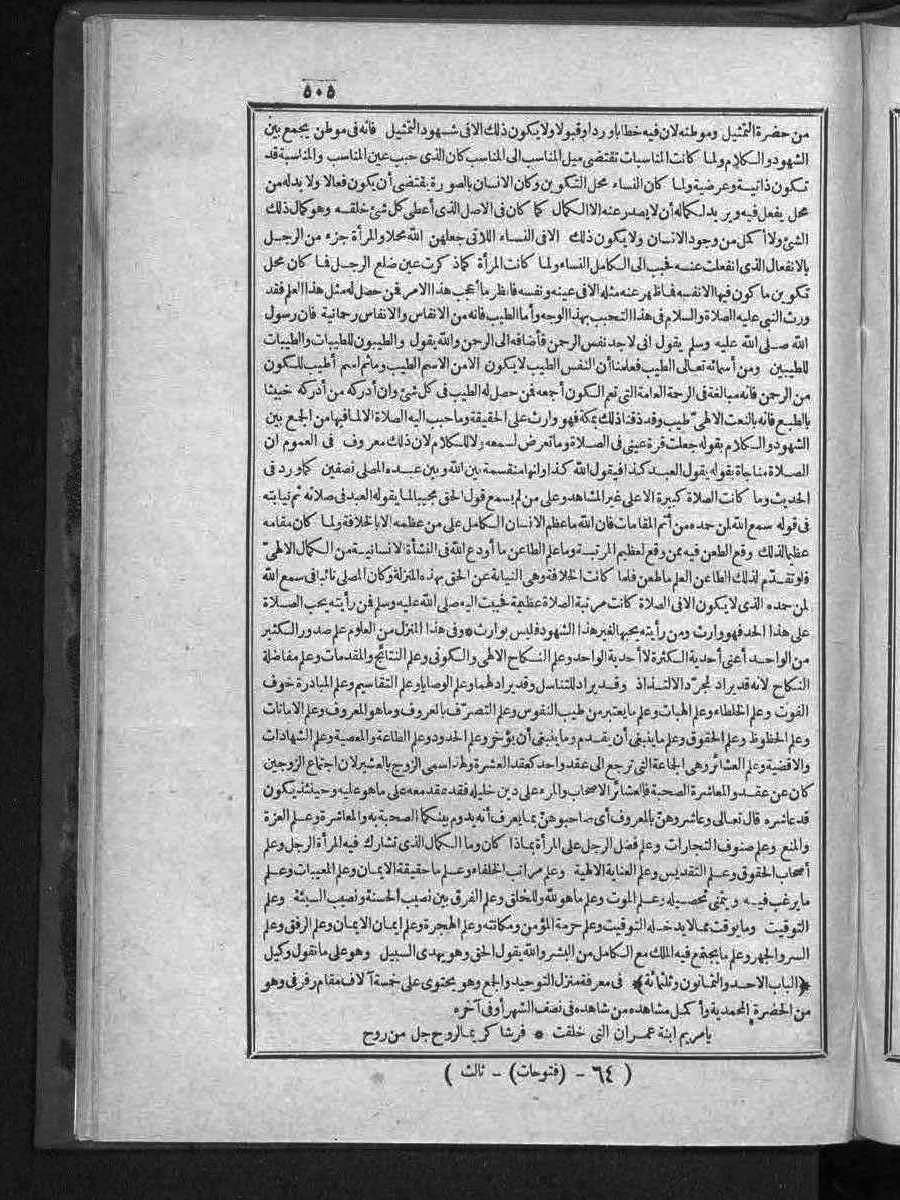 ٥٠٥
من حضرة التمثيل وموطنه لان فيه خطابا وردا وقبولا ولا يكون ذلك الا فى شهود التمثيل فانه فى موطن يجمع بين
الشهود والكلام ولما كانت المناسبات تقتضى ميل المناسب الى المناسب كان الذى حبب عين المناسب والمناسبة قد
تكون ذاتية وعرضية ولما كان النساء محل التكوين وكان الانسان بالصورة يقتضى أن يكون فعالا ولا بد له من
محل يفعل فيه ويريد لكماله أن لا يصدر عنه الا الكمال كما كان فى الاصل الذى أعطى كل شئ خلقه وهو كمال ذلك
الشئ ولا أكمل من وجود الانسان ولا يكون ذلك الا فى النساء اللاتى جعلهن الله محلا والمرأة جزء من الرجل
بالانفعال الذى انفعلت عنه فحبب الى الكامل النساء ولما كانت المرأة كما ذكرت عين ضلع الرجل فما كان محل
تكوين ما كون فيها الا نفسه فما ظهر عنه مثله الا فى عينه ونفسه فانظر ما أعجب هذا الامر فمن حصل له مثل هذا العلم فقد
ورث النبى عليه الصلاة والسلام فى هذا التحبب بهذا الوجه وأما الطيب فانه من الانفاس والانفاس رحمانية فان رسول
الله صلى الله عليه وسلم يقول انى لاجد نفس الرحمن فأضافه الى الرحمن والله يقول والطيبون للطيبات والطيبات
للطيبين ومن أسمائه تعالى الطيب فعلمنا أن النفس الطيب لا يكون الا من الاسم الطيب وما ثم اسم أطيب للكون
من الرحمن فانه مبالغة فى الرحمة العامة التى تعم الكون أجمعه فمن حصل له الطيب فى كل شئ وان أدركه من أدركه خبيثا
بالطبع فانه بالنعت الالهى طيب وقد ذقنا ذلك بمكة فهو وارث على الحقيقة وما حبب اليه الصلاة الا لما فيها من الجمع بين
الشهود والكلام بقوله جعلت قرة عينى فى الصلاة وما تعرض لسمعه ولا للكلام لان ذلك معروف فى العموم ان
الصلاة مناجاة بقوله يقول العبد كذا فيقول الله كذا وانها منقسمة بين الله وبين عبده المصلى نصفين كما ورد فى
الحديث وما كانت الصلاة كبيرة الا على غير المشاهد وعلى من لم يسمع قول الحق مجيبا لما يقوله العبد فى صلاته ثم نيابته
فى قوله سمع الله لمن حمده من أتم المقامات فان الله ما عظم الانسان الكامل على من عظمه الا بالخلافة ولما كان مقامه
عظيما لذلك وقع الطعن فيه ممن وقع لعظيم المرتبة وما علم الطاعن ما أودع الله فى النشأة الانسانية من الكمال الالهى
فلو تقدم لذلك الطاعن العلم ما طعن فلما كانت الخلافة وهى النيابة عن الحق بهذه المنزلة وكان المصلى نائبا فى سمع الله
لمن حمده الذى لا يكون الا فى الصلاة كانت مرتبة الصلاة عظيمة فحببت اليه صلى الله عليه وسلم فمن رأيته يحب الصلاة
على هذا الحد فهو وارث ومن رأيته يحبها لغير هذا الشهود فليس بوارث * وفى هذا المنزل من العلوم علم صدور الكثير
من الواحد أعنى أحدية الكثرة لا أحدية الواحد وعلم النكاح الالهى والكونى وعلم النتائج والمقدمات وعلم مفاضلة
النكاح لانه قد يراد لمجرد الالتذاذ وقد يراد للتناسل وقد يراد لهما وعلم الوصايا وعلم التقاسيم وعلم المبادرة خوف
الفوت وعلم الخلطاء وعلم الهبات وعلم ما يعتبر من طيب النفوس وعلم التصرف بالمعروف وما هو المعروف وعلم الامانات
وعلم الحظوظ وعلم الحقوق وعلم ما ينبغى أن يقدم وما ينبغى أن يؤخر وعلم الحدود وعلم الطاعة والمعصية وعلم الشهادات
والاقضية وعلم العشائر وهى الجماعة التى ترجع الى عقد واحد كعقد العشرة ولهذا سمى الزوج بالعشير لان اجتماع الزوجين
كان عن عقد والمعاشرة الصحبة فالعشائر الاصحاب والمرء على دين خليله فقد عقد معه على ما هو عليه وحينئذ يكون
قد عاشره قال تعالى وعاشروهن بالمعروف أى صاحبوهن بما يعرف أنه يدوم بينكما الصحبة به والمعاشرة وعلم العزة
والمنع وعلم صنوف التجارات وعلم فضل الرجل على المرأة بماذا كان وما الكمال الذى تشارك فيه المرأة الرجل وعلم
أصحاب الحقوق وعلم التقديس وعلم العناية الالهية وعلم مراتب الخلفاء وعلم ما حقيقة الايمان وعلم المعيبات وعلم
ما يرغب فيه ويتمنى تحصيله وعلم الموت وعلم ما هو لله وللخلق وعلم الفرق بين نصيب الحسنة ونصيب السيئة وعلم
التوقيت وما يوقت مما لا يدخله التوقيت وعلم حرمة المؤمن ومكانته وعلم الهجرة وعلم ايمان الايمان وعلم الرفق وعلم
السر والجهر وعلم ما يجتمع فيه الملك مع الكامل من البشر والله يقول الحق وهو يهدى السبيل وهو على ما نقول وكيل
﴿الباب الاحد والثمانون وثلثمائة﴾ فى معرفة منزل التوحيد والجمع وهو يحتوى على خمسة آلاف مقام رفرفى وهو
من الحضرة المحمدية وأكمل مشاهده من شاهده فى نصف الشهر أو فى آخره
يا مريم ابنة عمران التى خلقت * فرشا كريما لروح جل من روح
( ٦٤ - (فتوحات) - ثالث )